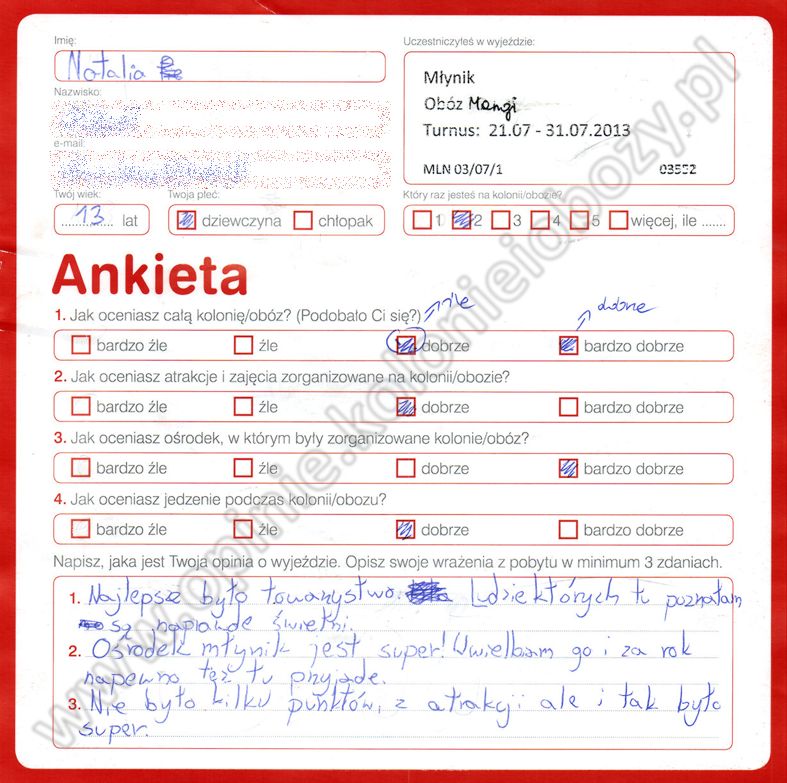 Imię:
Natalia
Uczestniczyłeś w wyjeździe:
Młynik
Obóz Mangi
Turnus: 21.07 - 31.07.2013
MLN 03/07/1 03552
Nazwisko:
e-mail:
Twój wiek: Twoja płeć: Który raz jesteś na kolonii/obozie?
13 lat dziewczyna chłopak 1 2 3 4 5 więcej, ile .......
Ankieta
źle dobrze
1. Jak oceniasz całą kolonię/obóz? (Podobało Ci się?)
bardzo źle źle dobrze bardzo dobrze
2. Jak oceniasz atrakcje i zajęcia zorganizowane na kolonii/obozie?
bardzo źle źle dobrze bardzo dobrze
3. Jak oceniasz ośrodek, w którym były zorganizowane kolonie/obóz?
bardzo źle źle dobrze bardzo dobrze
4. Jak oceniasz jedzenie podczas kolonii/obozu?
bardzo źle źle dobrze bardzo dobrze
Napisz, jaka jest Twoja opinia o wyjeździe. Opisz swoje wrażenia z pobytu w minimum 3 zdaniach.
1. Najlepsze było towarzystwo. Ludzie których tu poznałam
są naprawde świetni.
2. Ośrodek młynik jest super! Uwielbiam go i za rok
napewno też tu przyjade.
3. Nie było kilku punktów, z atrakcji ale i tak było
super.
www.opinie.kolonieiobozy.pl